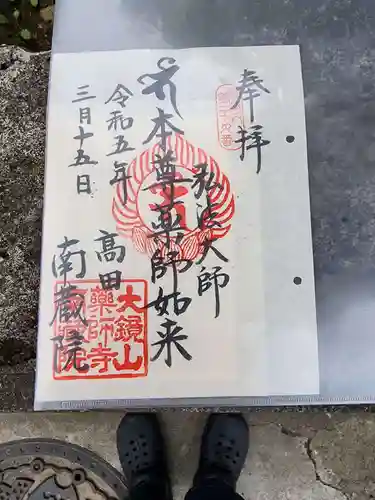 奉拝
弘法大師
本尊薬師如来
高田
南蔵院
令和五年
三月十五日
大鏡山
薬師寺